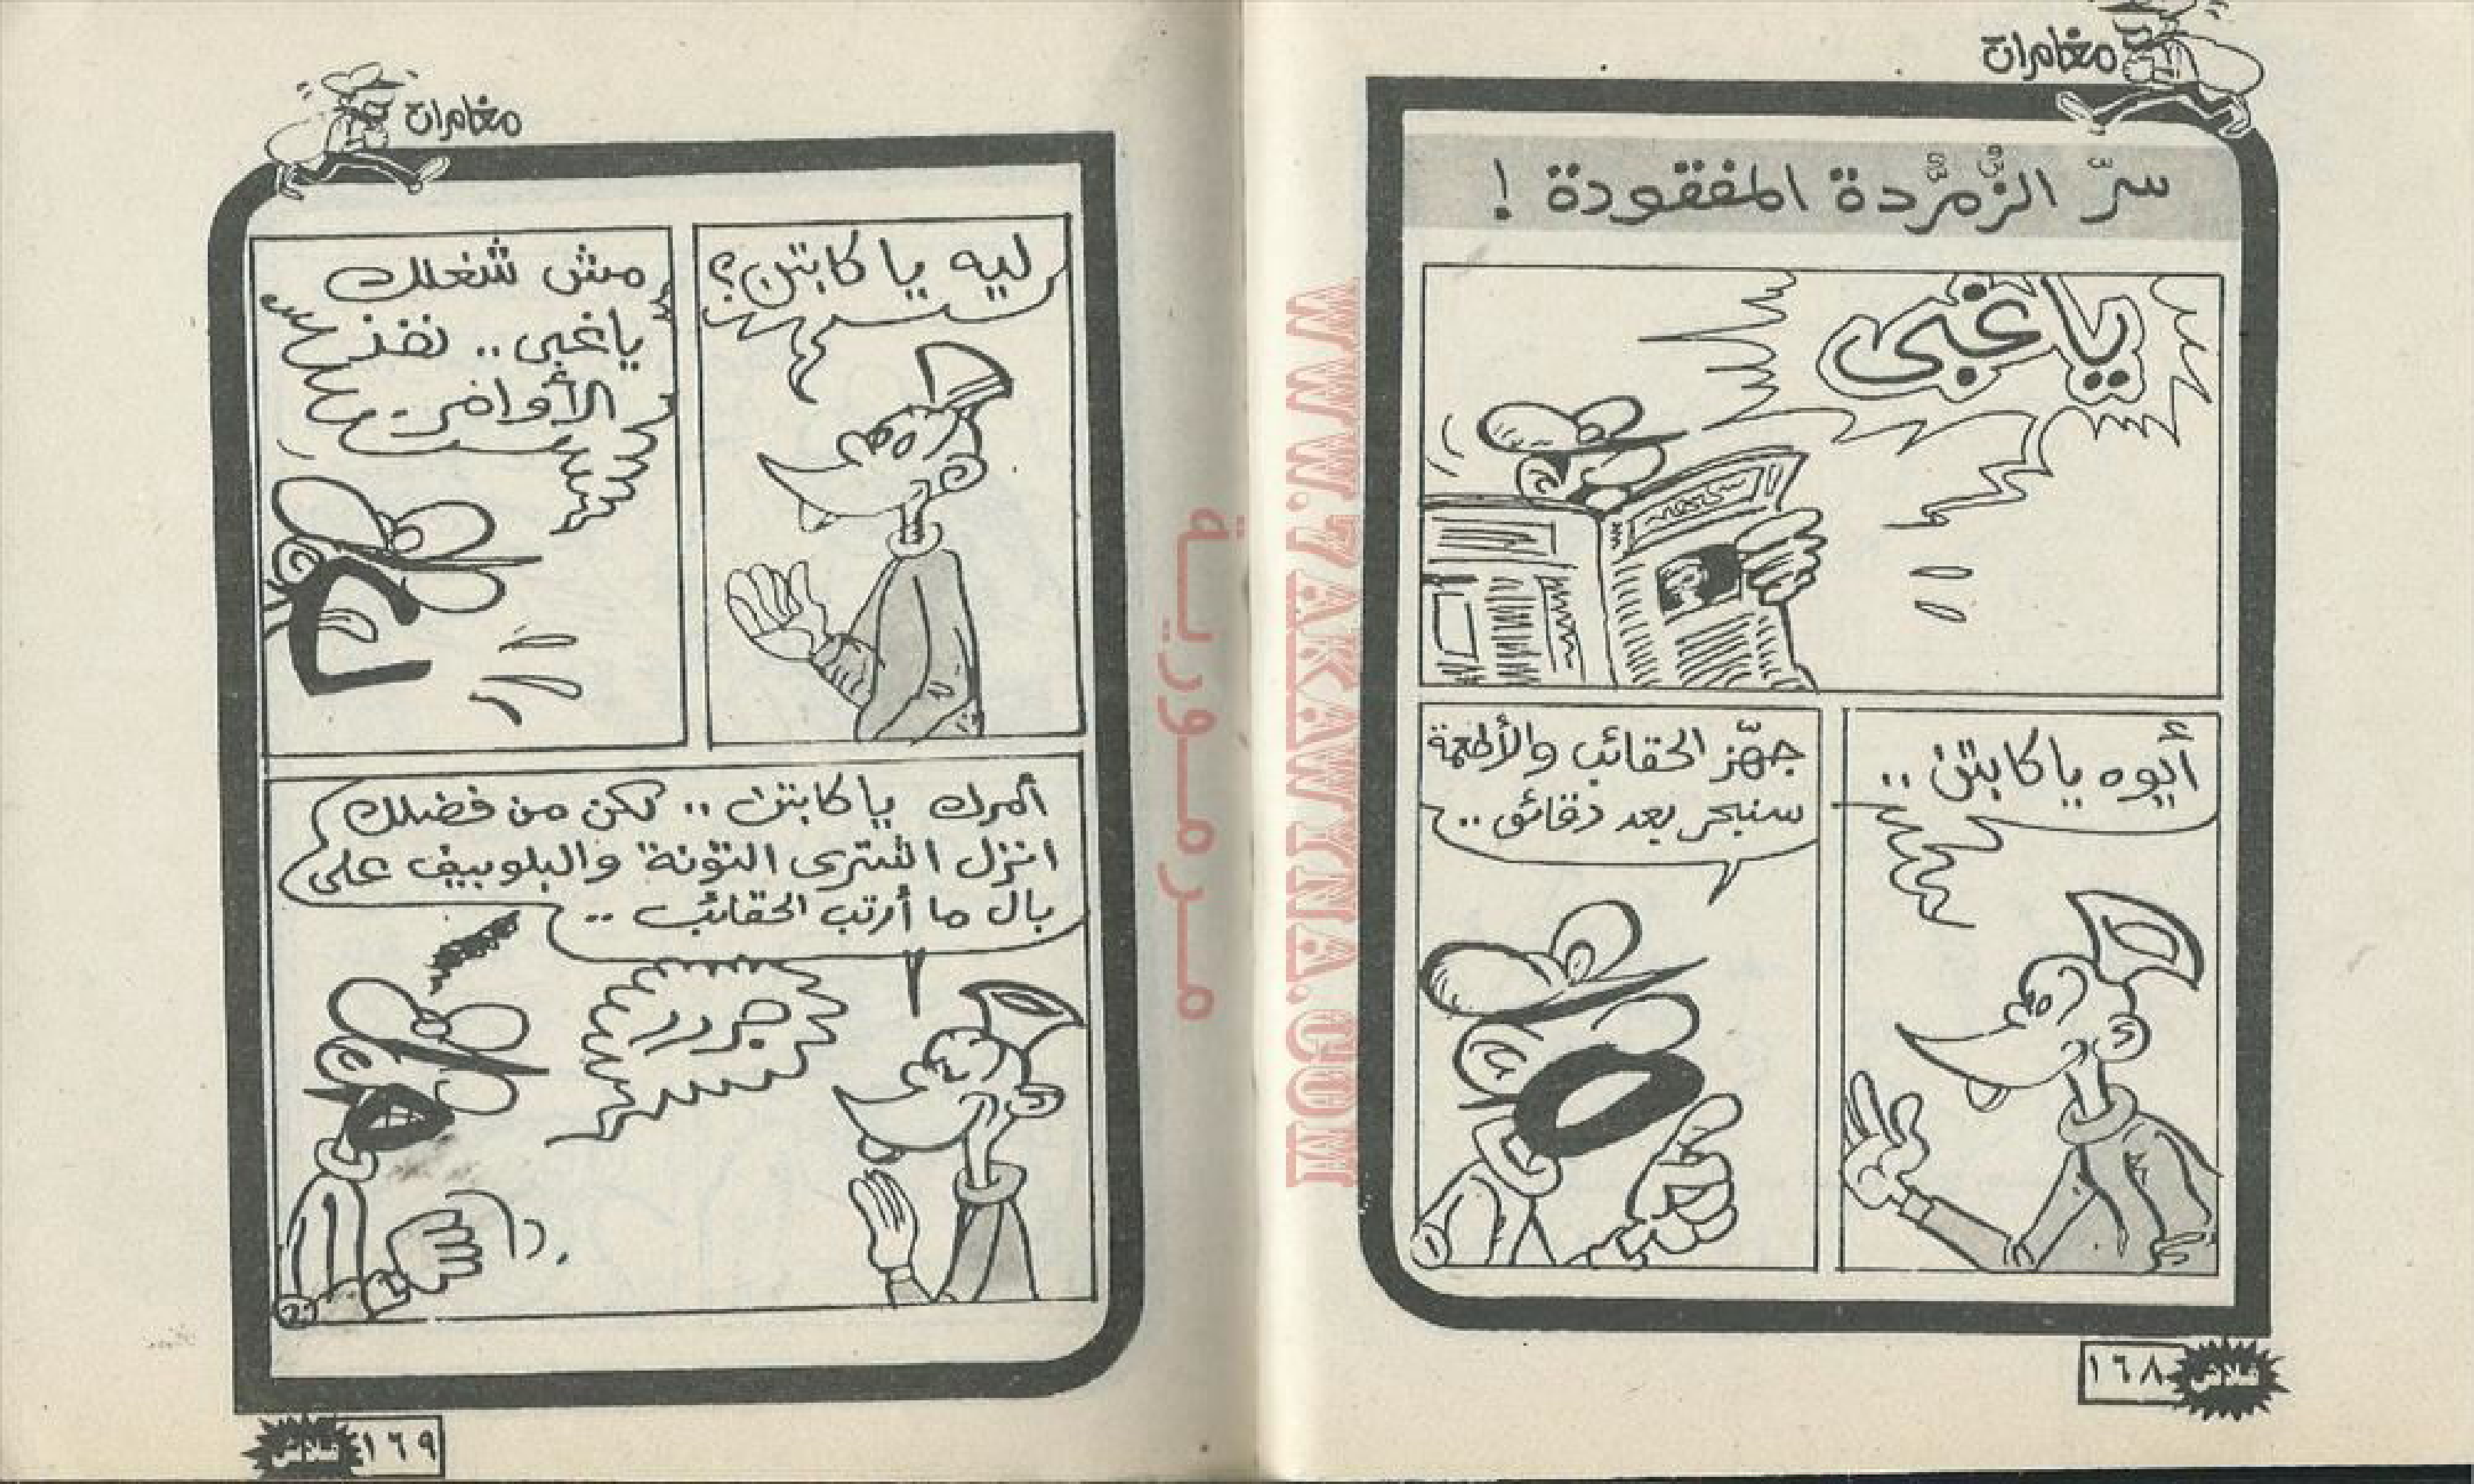 مغامرات
سرّ الزُّمرُّدة المفقودة !
يا غبى
أيوه ياكابتن ..
جهّز الحقائب والأطعمة
سنبحر بعد دقائق ..
١٦٨
فلاش
WWW.7AKAWYNA.COM
مرمورية
مغامرات
ليه ياكابتن؟
مش شغلك
ياغبى .. نفذ
الأوامر ..
أمرك ياكابتن .. لكن من فضلك
انزل اشترى التونة والبلوبيف على
بال ما أرتب الحقائب ..
جررر
١٦٩
فلاش